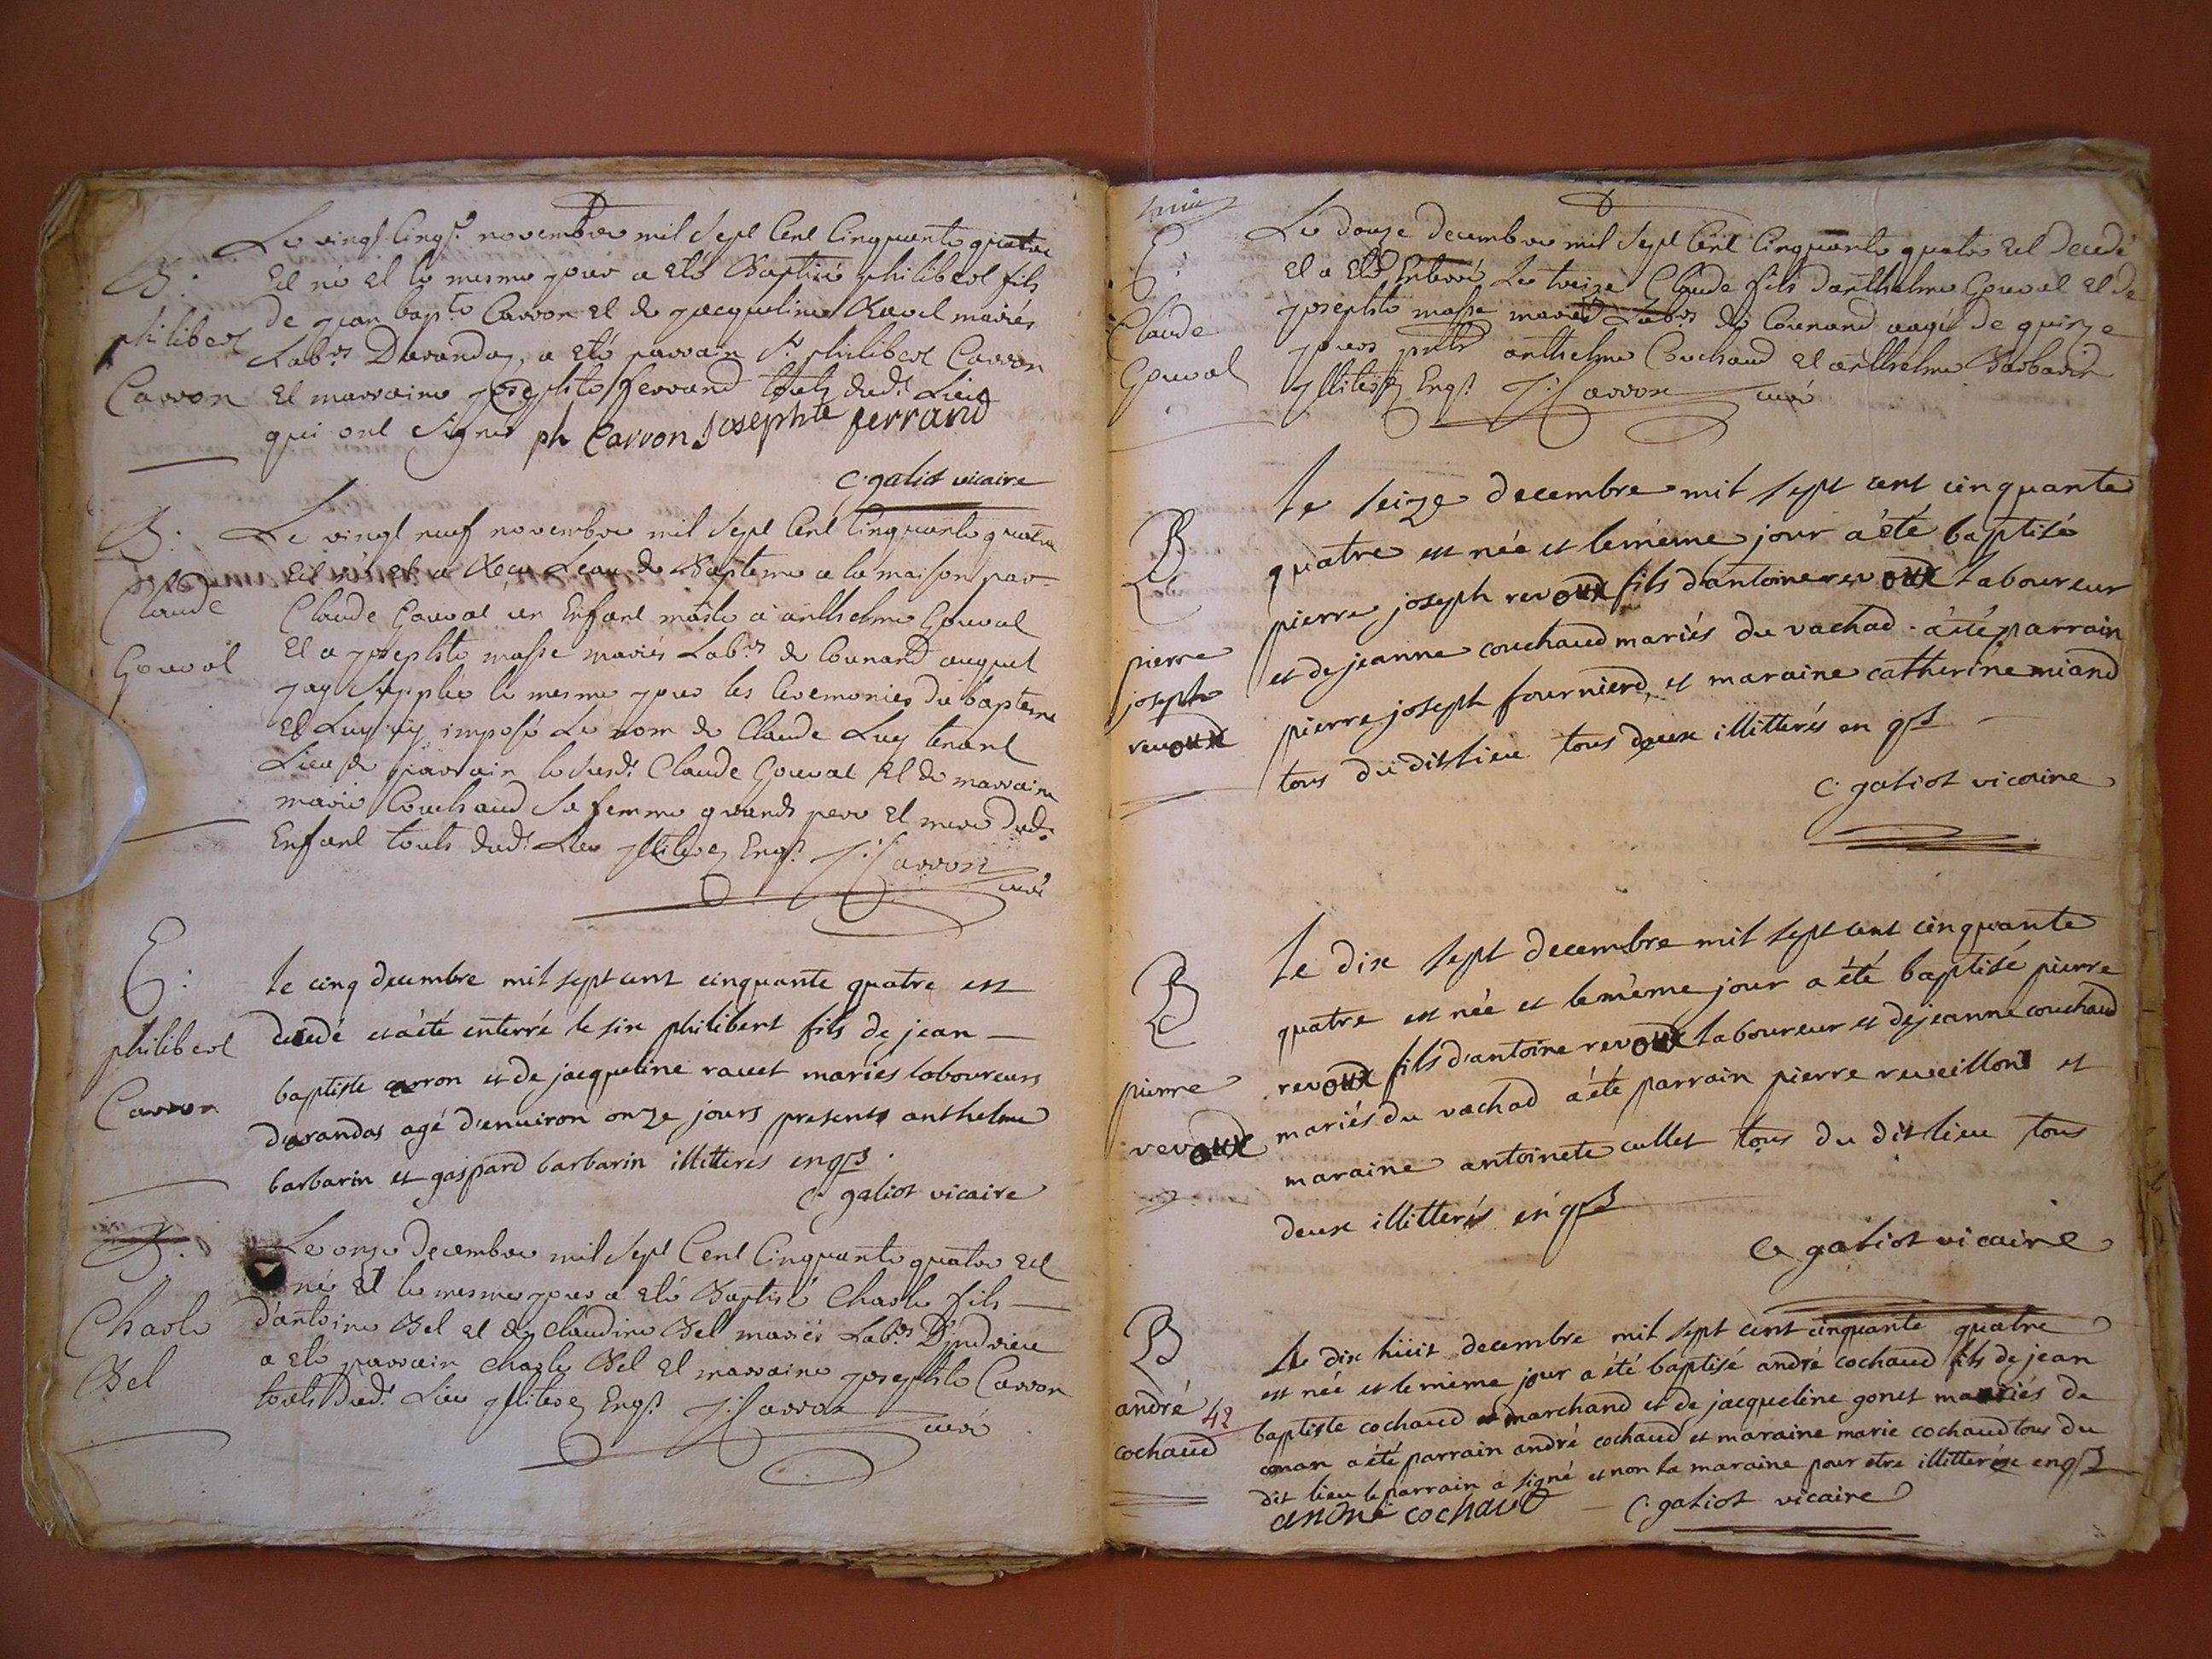 B:
philibert
Carron
Le vingt Cinq.e novembre mil Sept Cent Cinquante quatre
Est né et le mesme jour a eté Baptisé philibert fils
de jean bap.te Carron et de jacqueline Ravet mariés
Lab.rs Darandas, a eté parrain S.r philibert Carron
et marraine josephte ferrand touts dud.t Lieu
qui ont Signé ph Carron Josephte ferrand
C. galiot vicaire
B:
Claude
Gouval
Le vingt neuf novembre mil Sept Cent Cinquante quatre
Est né et a Reçu Leau de Bapteme a la maison par
Claude Gouval un Enfant masle a anthelme Gouval
Et a josephte masse mariés Lab.rs de Counand auquel
jay Supplée le mesme jour les Ceremonies du bapteme
Et Luy ay imposé Le nom de Claude Luy tenant
Lieu de parrain le Susd.t Claude Gouval et de marraine
marie Couchaud Sa femme grands pere et mere dud.t
Enfant touts dud.t Lieu jlliterés Enq.s J: Carron
curé
E:
philibert
Carron
le cinq decembre mil sept cent cinquante quatre est
decedé et a été enterré le six philibert fils de jean
baptiste carron et de jacqueline ravet mariés laboureurs
d'arandas agé d'environ onze jours presents anthelme
barbarin et gaspard barbarin illitteres enqs.
C. galiot vicaire
B:
Charle
Bel
Le onze Decembre mil Sept Cent Cinquante quatre est
né Et le mesme jour a eté Baptisé Charle fils
d'antoine Bel et de claudine Bel mariés Lab.rs D'indrieu
a eté parrain Charle Bel et marraine josephte Carron
touts Dud.t Lieu jlliterés Enq.s J: Carron
curé
E:
Claude
Gouval
Le douze decembre mil Sept Cent Cinquante quatre Est Decedé
Et a Eté Enterré Le treize Claude fils danthelme Gouval et de
josephte masse mariés Lab.rs de Counand aagé de quinze
jours pnts anthelme Couchaud et anthelme Barbarin
jlliterés Enq.s J: Carron curé
B
pierre
joseph
revoux
le seize decembre mil sept cent cinquante
quatre est née et le même jour a été baptisé
pierre joseph revoux fils d'antoine revoux laboureur
et de jeanne couchaud mariés du vachad. a été parrain
pierre joseph fournierd, et maraine catherine miand
tous du dit lieu tous deux illitterés en qs
C. galiot vicaire
B
pierre
revoux
le dix sept decembre mil sept cent cinquante
quatre est née et le même jour a été baptisé pierre
revoux fils d'antoine revoux laboureur et de jeanne couchaud
mariés du vachad a été parrain pierre reveillond et
maraine antoinete cullet tous du dit lieu tous
deux illitterés en qs
C. galiot vicaire
B
andré 42
cochaud
le dix huit decembre mil sept cent cinquante quatre
est née et le même jour a été baptisé andré cochaud fils de jean
baptiste cochaud marchand et de jacqueline gonet mariés de
conan a été parrain andré cochaud et maraine marie cochaud tous du
dit lieu le parrain a signé et non la maraine pour etre illitterée enqs
andré cochaud C. galiot vicaire